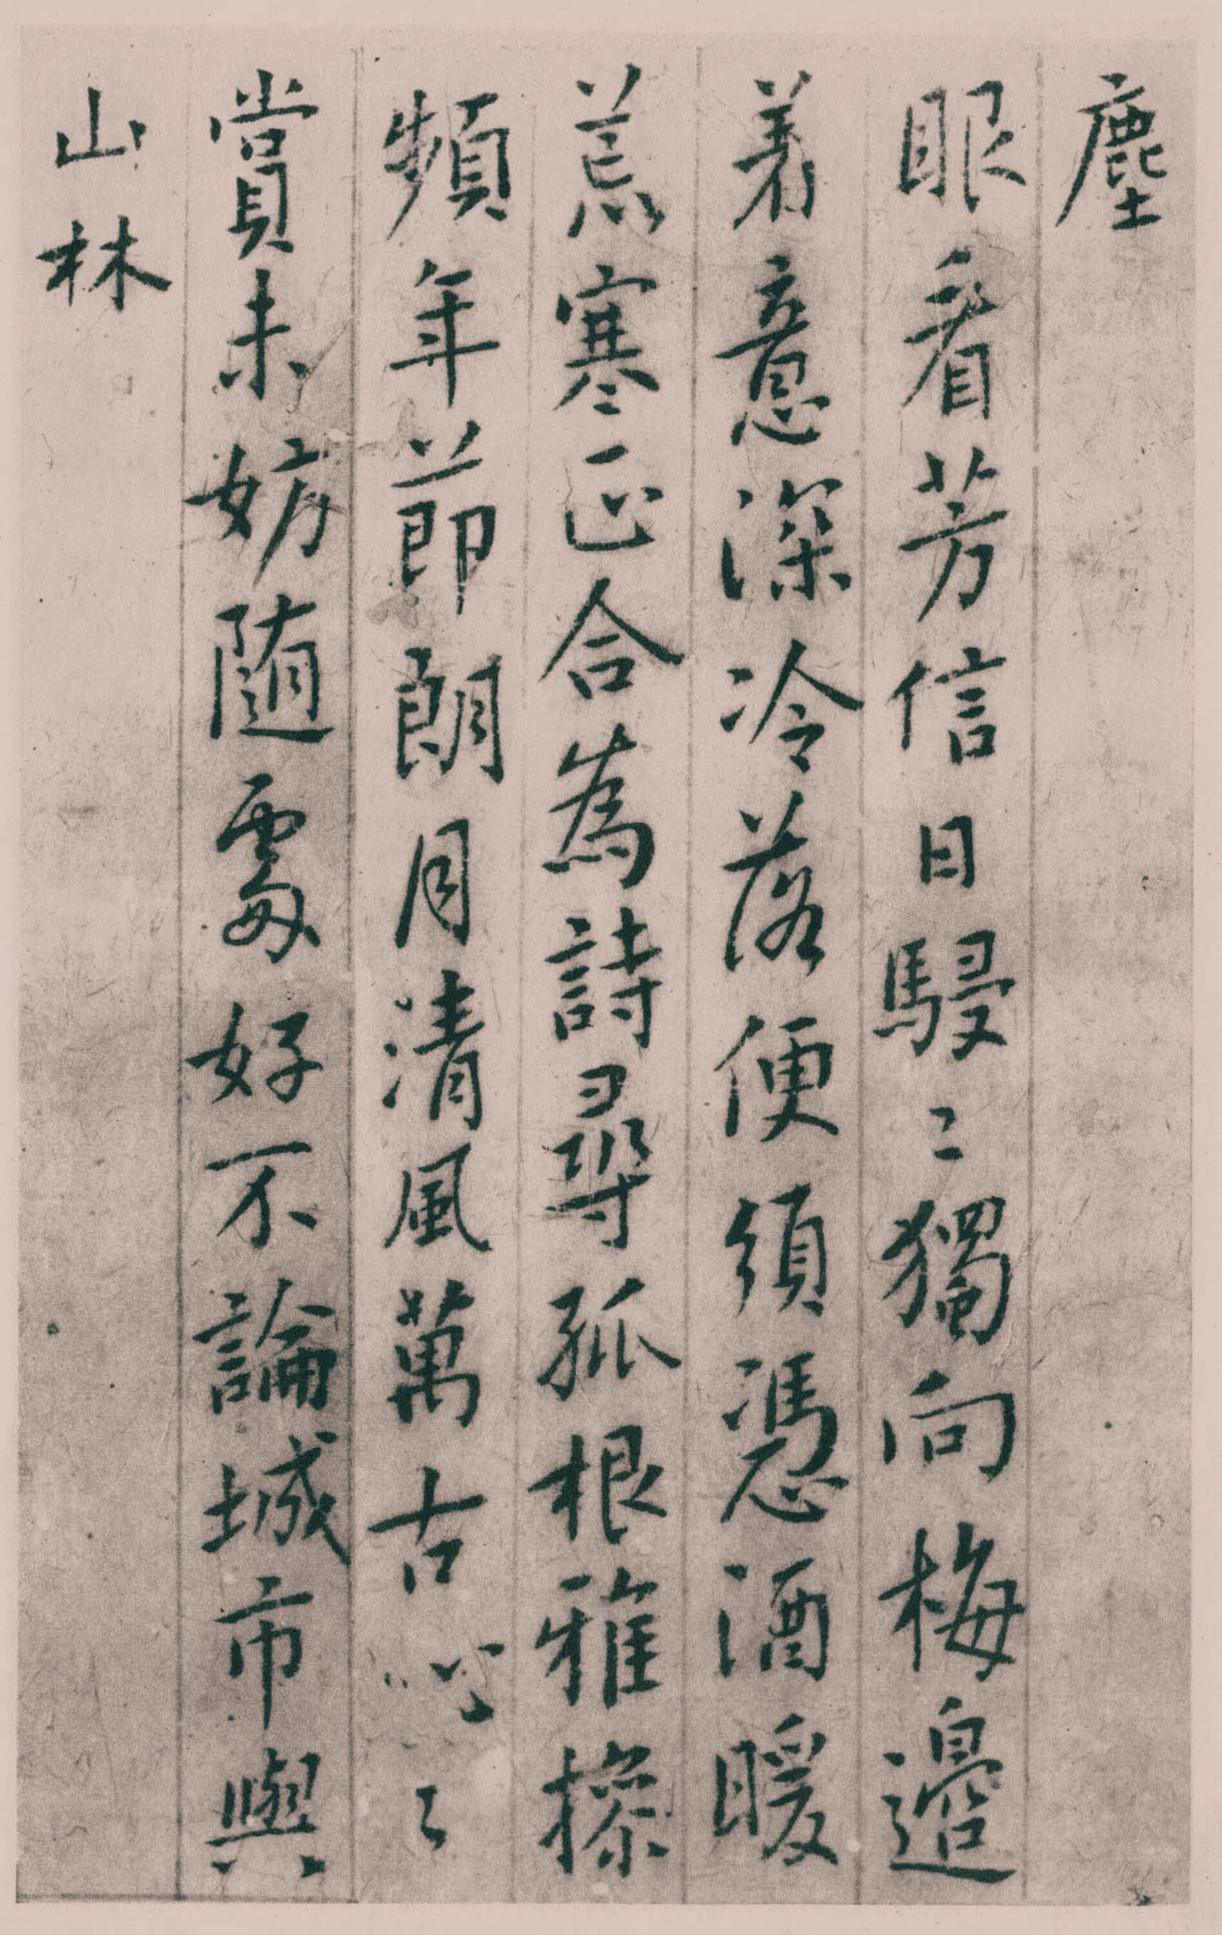 塵
眼看芳信日駸〻獨向梅邊
着意深冷落便須憑酒暖
荒寒正合為詩尋孤根雅操
頻年莭朗月清風萬古心〻
賞未妨随處好不論城市與
山林